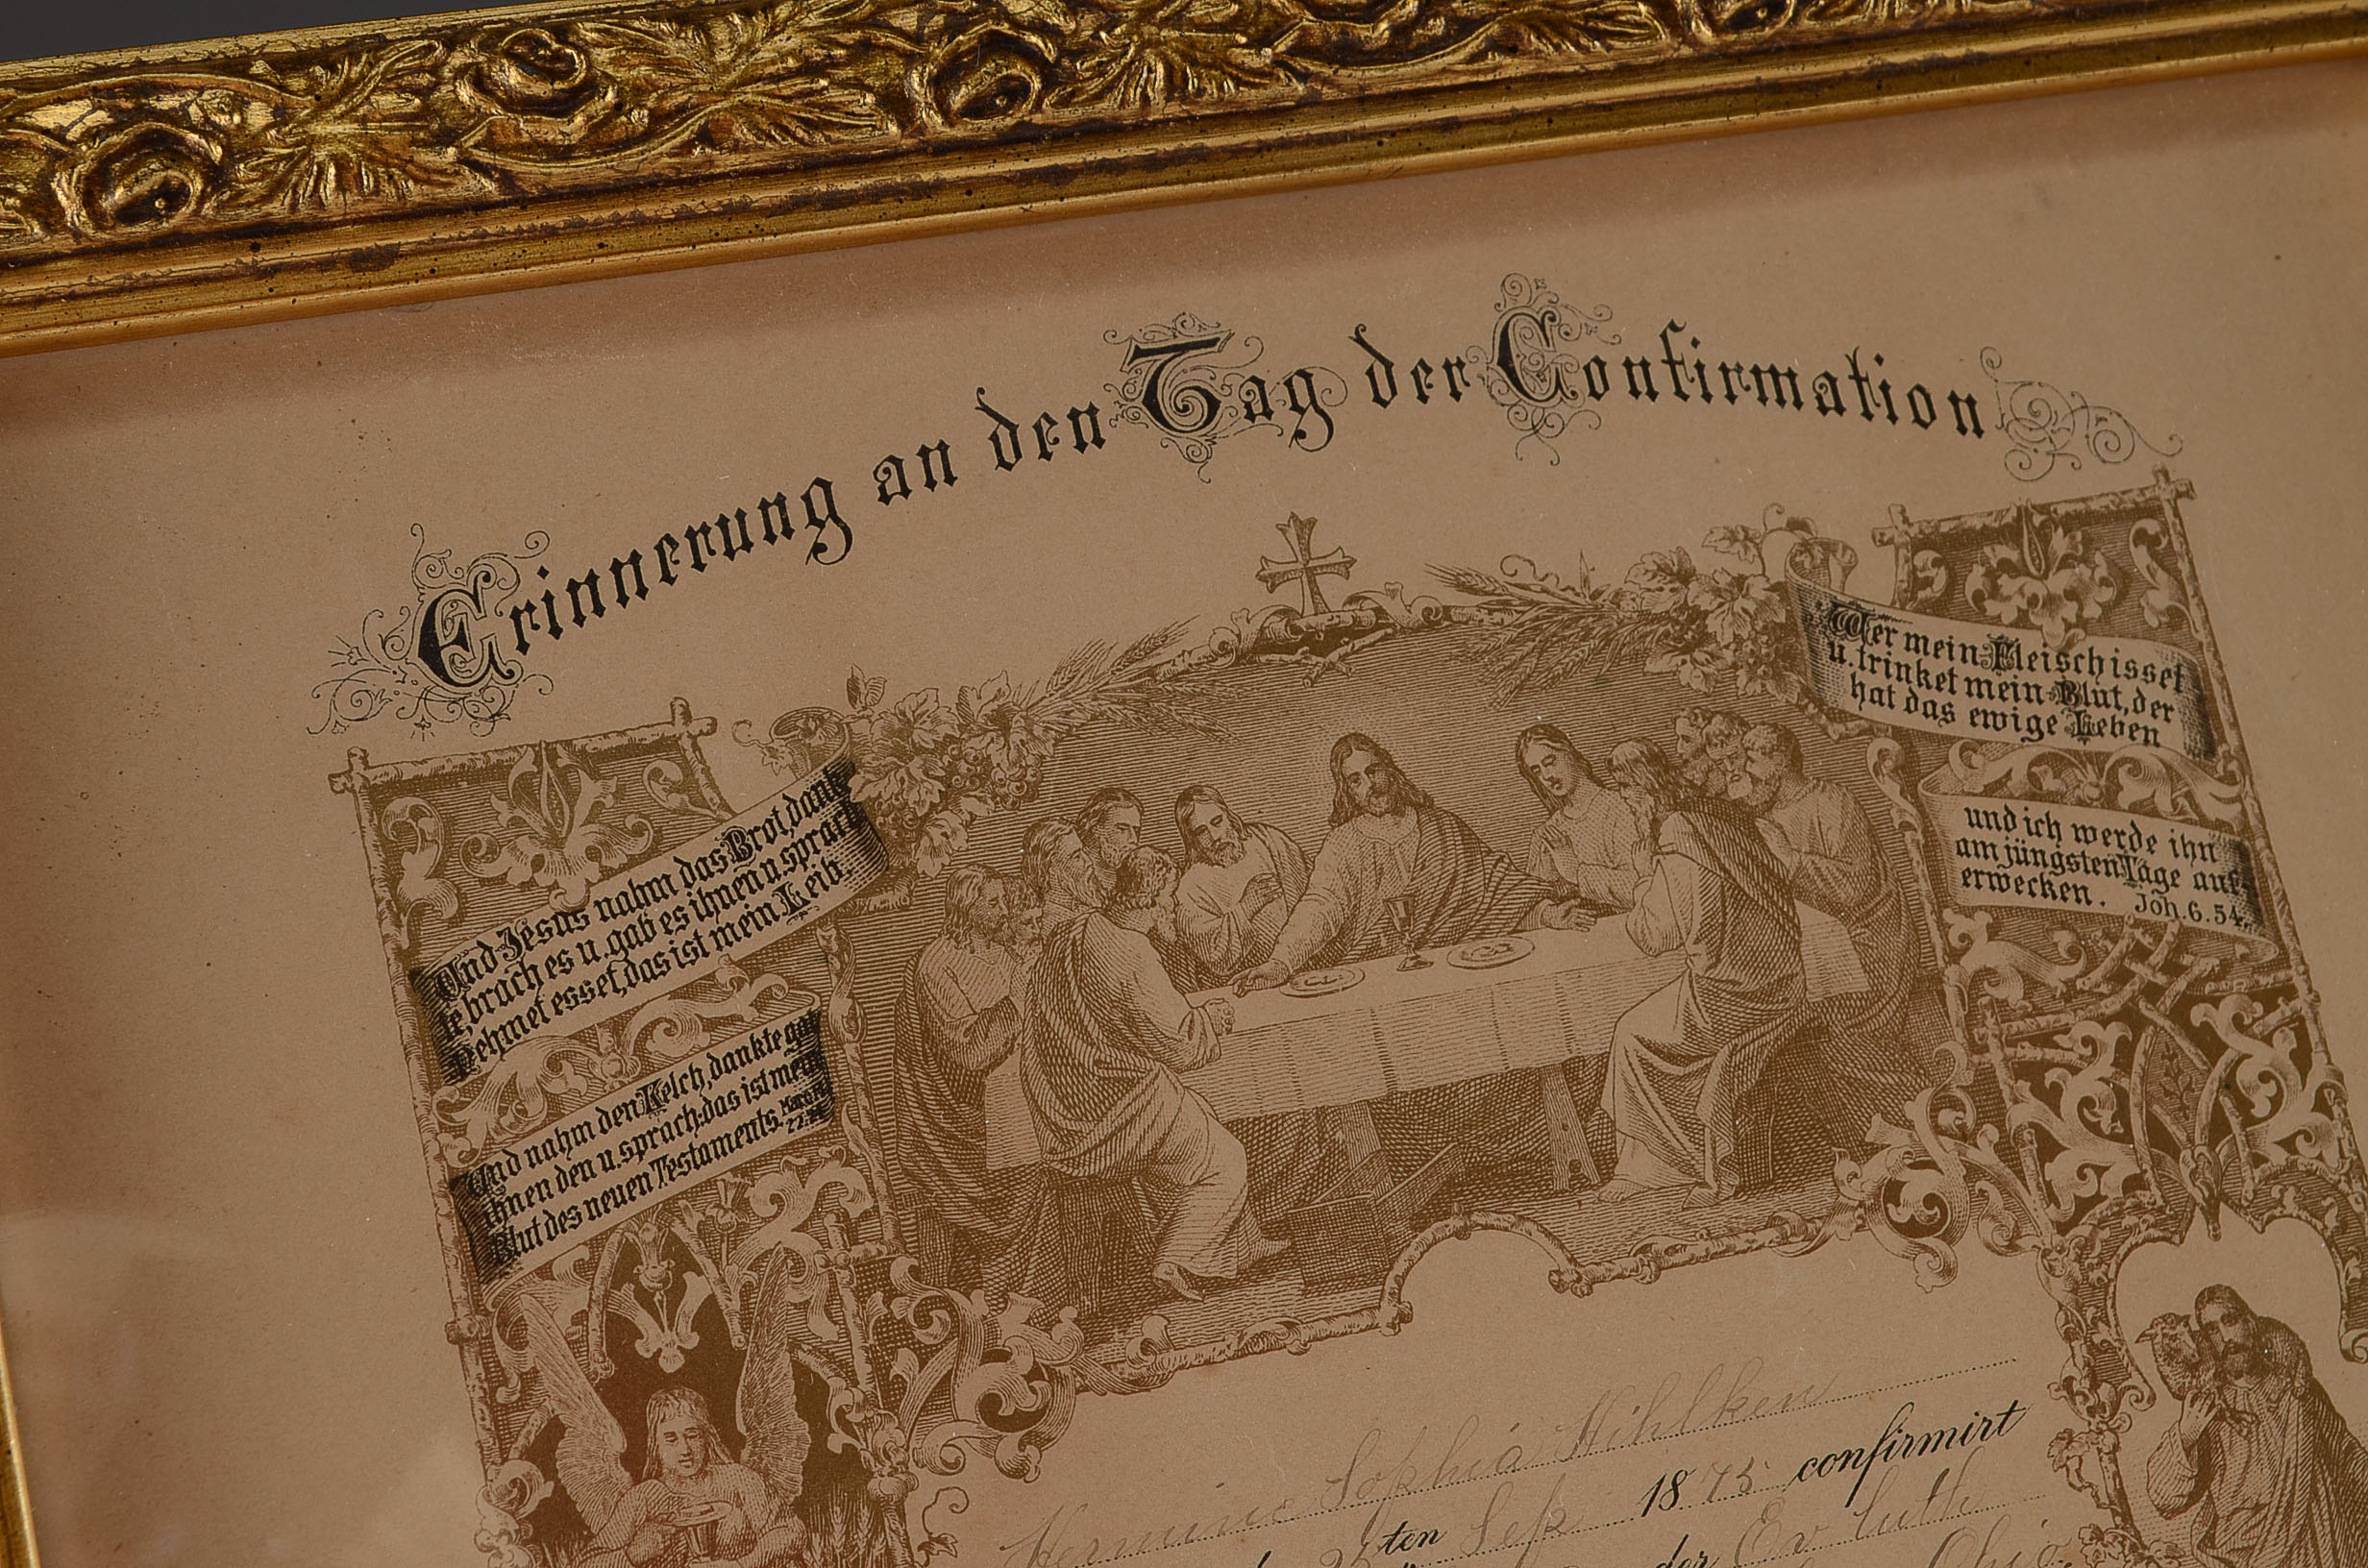 Erinnerung an den Tag der Confirmation
Und Jesus nahm das Brot, dank
te, brach es u. gab es ihnen u. sprach
Nehmet esset, das ist mein Leib.
Und nahm den Kelch, dankte gab
ihnen den u. sprach: das ist mein
Blut des neuen Testaments.
Wer mein Fleisch isset
u. trinket mein Blut, der
hat das ewige Leben
und ich werde ihn
am jüngsten Tage auf-
erwecken. Joh. 6. 54.
Hermine Sophia
ten Sep 1875 confirmirt
der Ev luth
Ohio